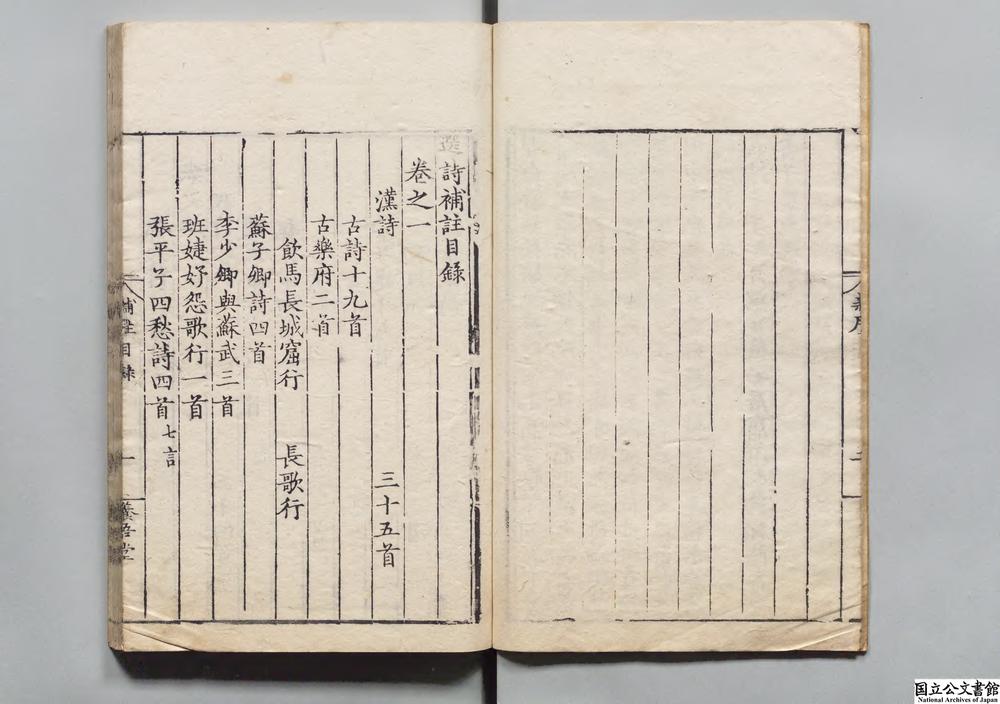 選詩補註目録
卷之一
漢詩 三十五首
古詩十九首
古樂府二首
飲馬長城窟行 長歌行
蘇子卿詩四首
李少卿與蘇武三首
班婕妤怨歌行一首
張平子四愁詩四首 七言
補註目録 一 養吾堂
国立公文書館
National Archives of Japan